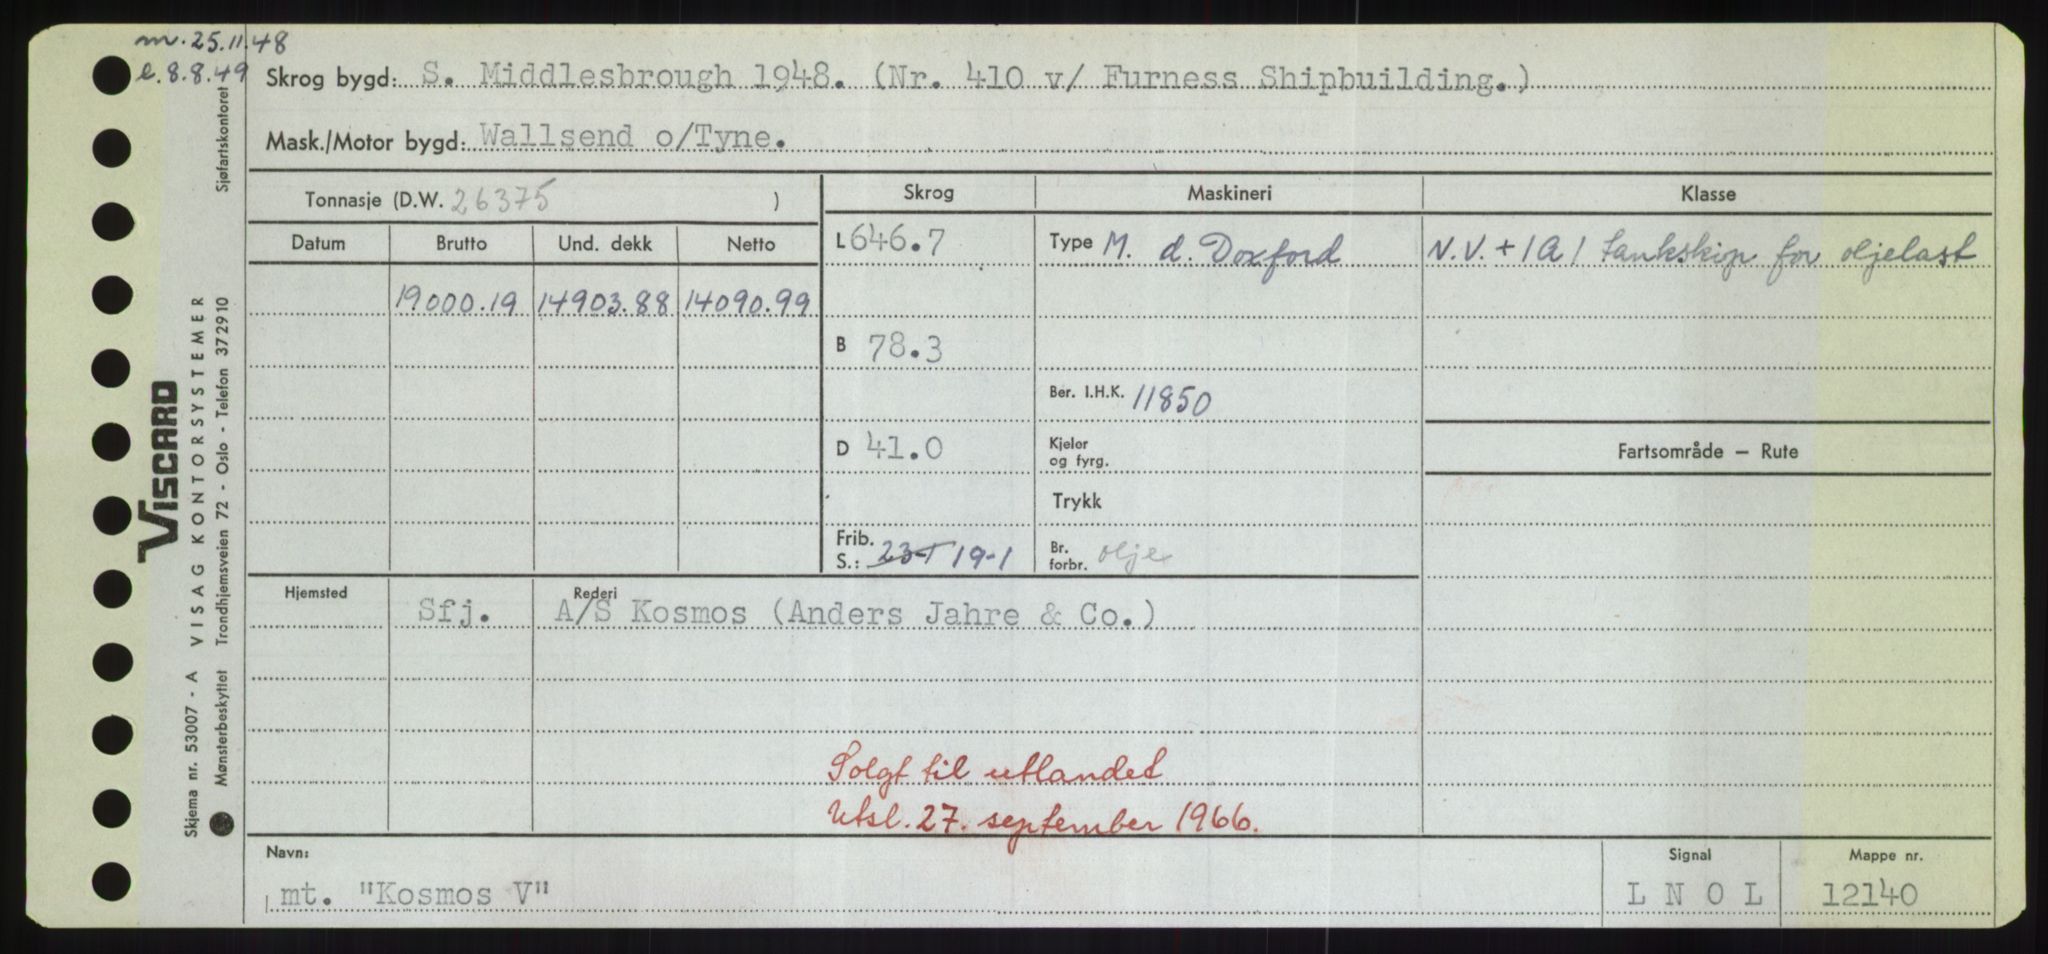 m. 25.11.48
e. 8.8.49
Skrog bygd: S. Middlesbrough 1948. (Nr. 410 v/ Furness Shipbuilding.)
Mask./Motor bygd: Wallsend o/Tyne.
Tonnasje (D.W. 26375 )
Skrog
Maskineri
Klasse
Datum Brutto Und. dekk Netto
L 646.7
Type M. d. Doxford
N.V. + 1A1 tankskip for oljelast
19000.19 14903.88 14090.99
B 78.3
Ber. I.H.K. 11850
D 41.0
Kjeler
og fyrg.
Fartsområde – Rute
Trykk
Frib.
S.: 23-1 19-1
Br.
forbr. olje
Hjemsted
Rederi
Sfj. A/S Kosmos (Anders Jahre & Co.)
Solgt til utlandet
Utsl. 27. september 1966.
Navn:
Signal
Mappe nr.
mt. "Kosmos V"
L N O L
12140
VISCARD
Skjema nr. 53007 - A VISAG KONTORSYSTEMER
Mønsterbeskyttet Trondhjemsveien 72 - Oslo - Telefon 372910 Sjøfartskontoret